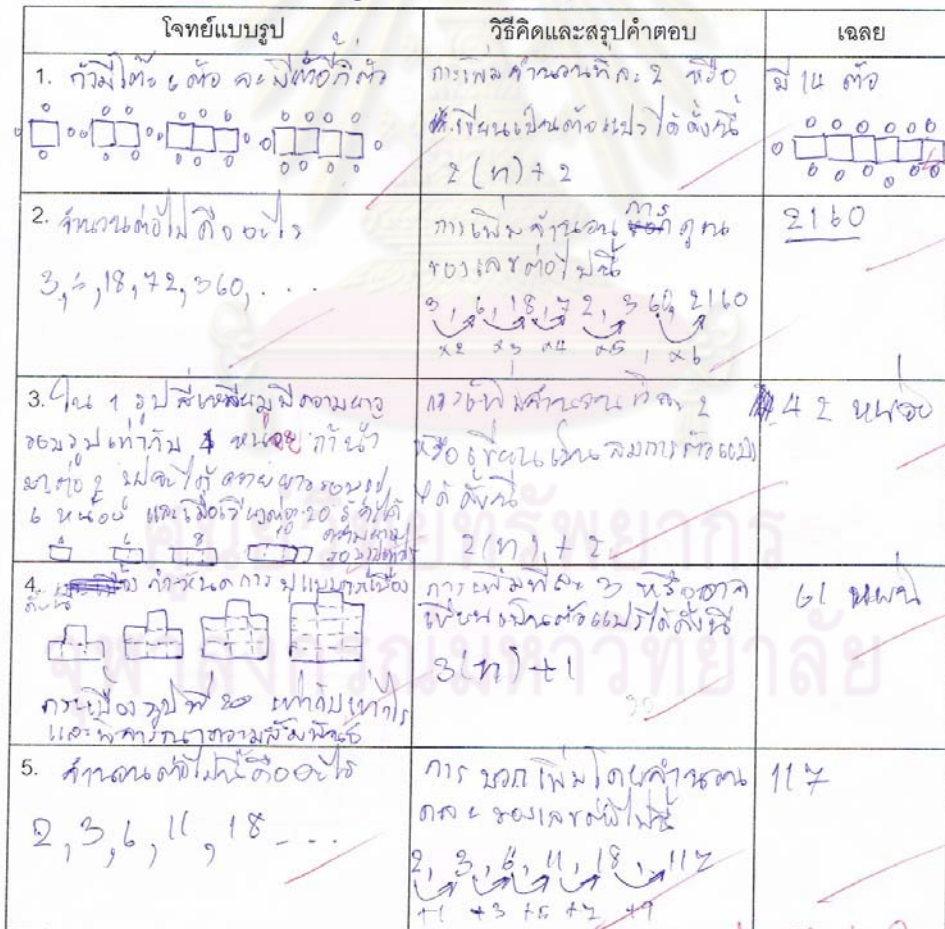 โจทย์แบบรูป
วิธีคิดและสรุปคำตอบ
เฉลย
1. ถ้ามีโต๊ะ 6 ตัว จะมีเก้าอี้กี่ตัว
การเพิ่มจำนวนทีละ 2 หรือ
เขียนเป็นตัวแปรได้ดังนี้
2(n)+2
มี 14 ตัว
2. จำนวนต่อไปคืออะไร
3, 6, 18, 72, 360, ....
การเพิ่มจำนวน การ คูณ
ของเลขต่อไปนี้
3, 6, 18, 72, 360, 2160
×2 ×3 ×4 ×5 ×6
2160
3. ใน 1 รูปสี่เหลี่ยมมีความยาว
รอบรูปเท่ากับ 4 หน่วย ถ้านำ
มาต่อ 2 รูปจะได้ความยาวรอบรูป
6 หน่วย และเมื่อเรียงต่อ 20 รูปจะได้
ความยาว
รอบรูปเท่าไร
4 6 8 10
การเพิ่มจำนวนทีละ 2
หรือเขียนเป็นสมการตัวแปร
ได้ดังนี้
2(n)+2
42 หน่วย
4. กำหนดการปูแบบกระเบื้อง
ดังนี้
กระเบื้องรูปที่ 20 เท่ากับเท่าไร
และพิจารณาความสัมพันธ์
การเพิ่มทีละ 3 หรืออาจ
เขียนเป็นตัวแปรได้ดังนี้
3(n)+1
61 แผ่น
5. จำนวนต่อไปนี้คืออะไร
2, 3, 6, 11, 18 ....
การบวกเพิ่มโดยจำนวน
ของเลขต่อไปนี้
2, 3, 6, 11, 18, 117
+1 +3 +5 +7 +9
117
ศูนย์วิทยทรัพยากร
จุฬาลงกรณ์มหาวิทยาลัย